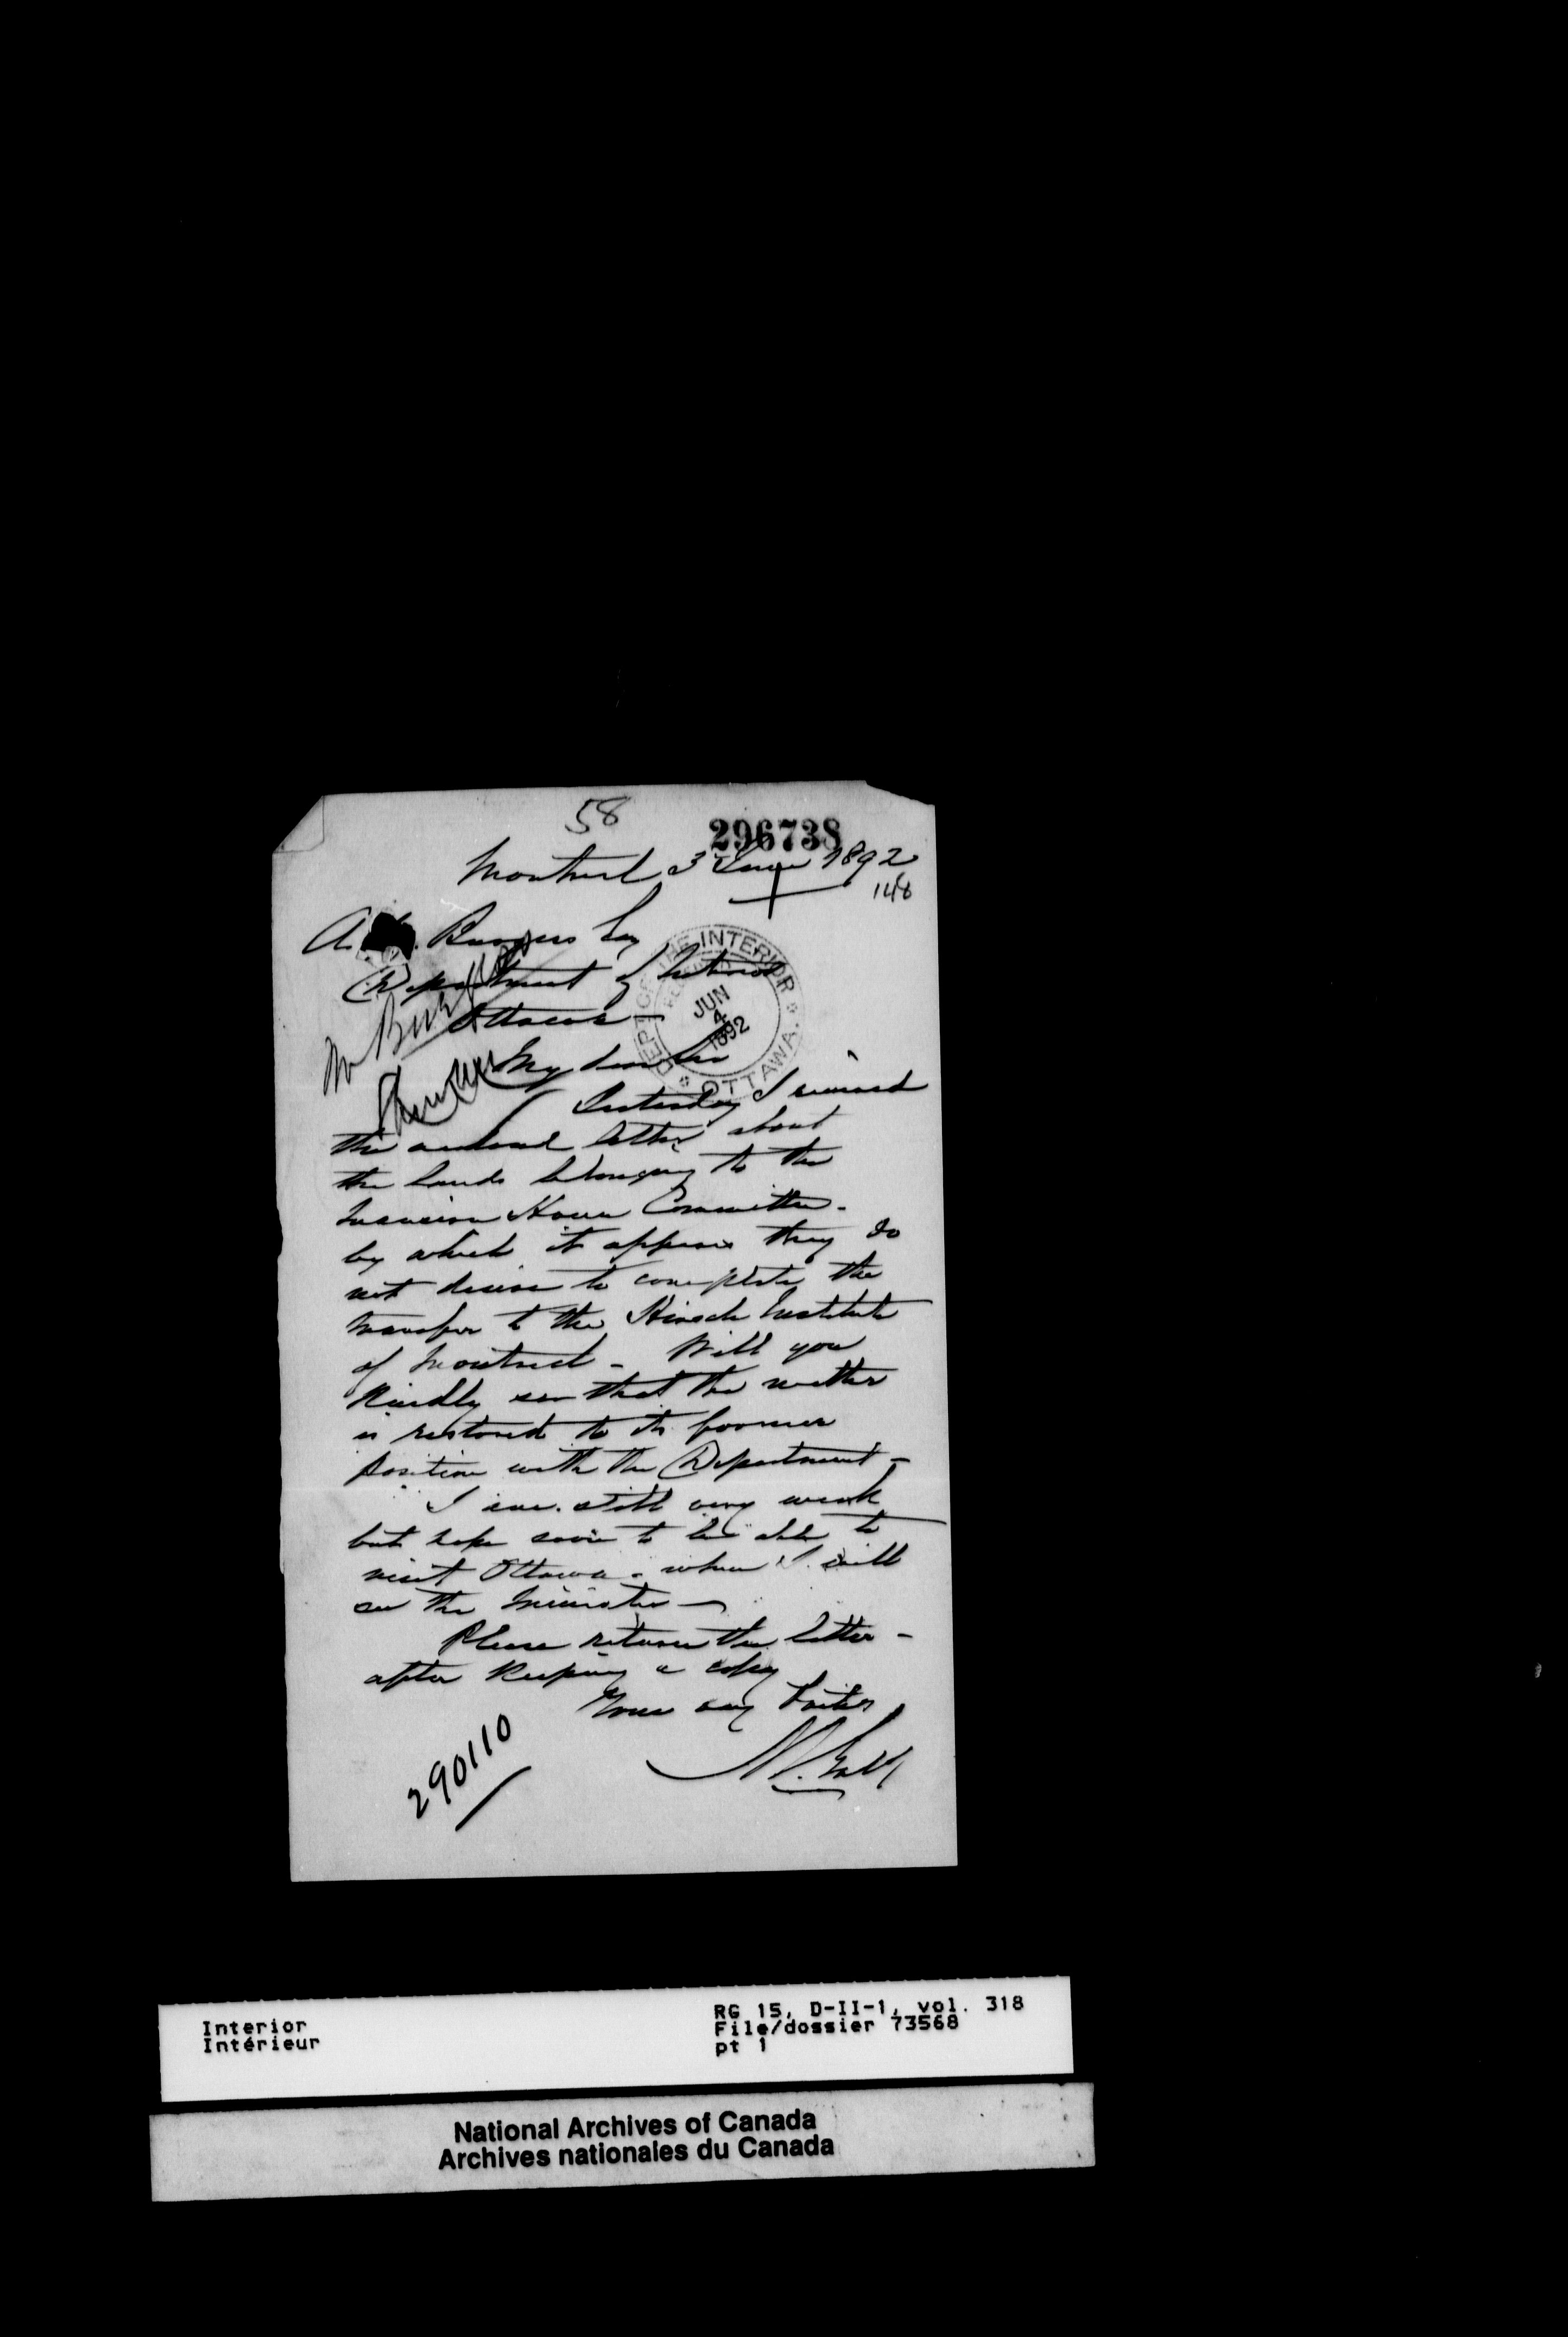 58
296738
Montreal 3 June 1892
148
A. Burgess Esq
Department of Interior
Ottawa
DEPT. OF THE INTERIOR
JUN
4
1892
OTTAWA.
My dear Sir
Yesterday I received
the enclosed letter about
the lands belonging to the
Mansion House Committee -
by which it appears they do
not desire to complete the
transfer to the Hirsch Institute
of Montreal - Will you
kindly see that the matter
is restored to its former
position with the Department -
I am still very weak
but hope soon to be able to
visit Ottawa - when I will
see the Minister -
Please return the letter -
after keeping a copy
Yours very
A. Galt
290110
Interior
Intérieur
RG 15, D-II-1, vol. 318
File/dossier 73568
pt 1
National Archives of Canada
Archives nationales du Canada